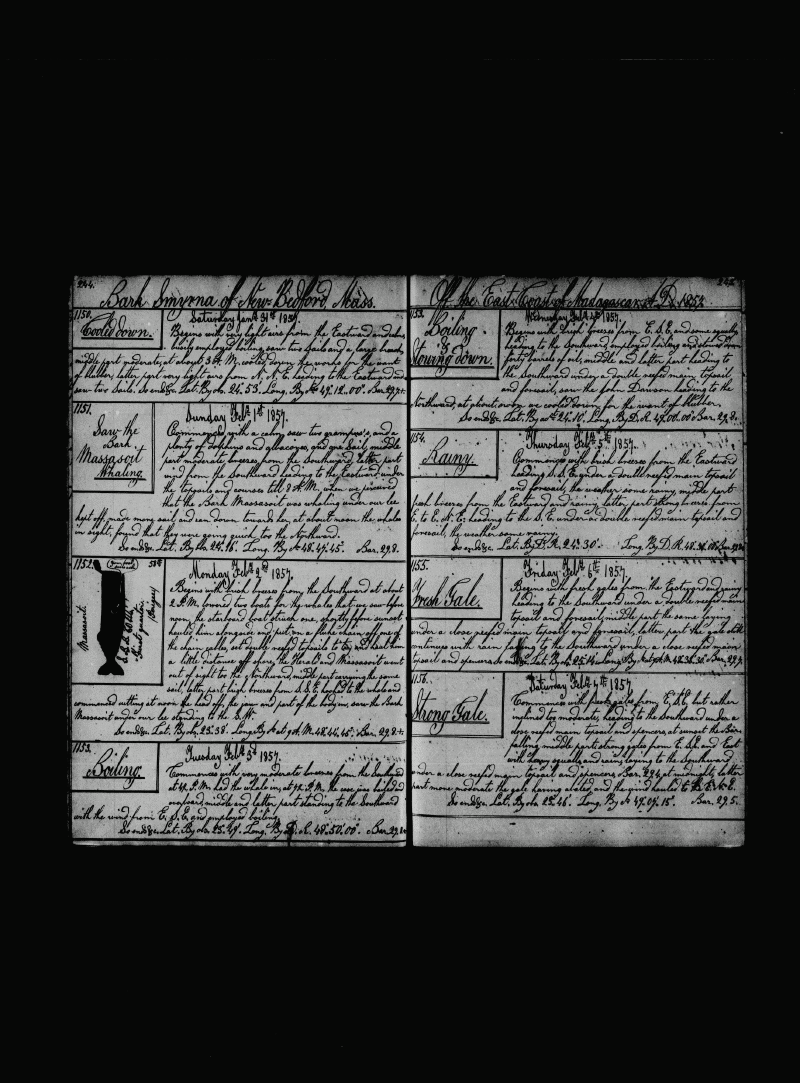 244.
Bark Smyrna of New-Bedford Mass.
1150.
Cooled down.
Saturday Jan. 31st 1857.
Begins with very light airs from the Eastward
employed boiling, saw two Sails and a large
middle part moderate, at about 3 A.M. cooled down, the weather for the want
of Blubber, latter part very light airs from N.N.E. heading to the Eastward and
saw two Sails. So ends &c. Lat. By obs. 24°.53. Long. By 47°.12.00". Bar. 29.7
1151.
Saw the
Bark
Massasoit
Whaling.
Sunday Feb. 1st 1857.
Commences with a calm, saw two grampus's, and a
plenty of dolphins and albacores, and one Sail, middle
part moderate breezes from the Southward, latter part
wind from the Southward heading to the Eastward under
the topsails and courses till 8 A.M. when we perceived
that the Bark Massasoit was whaling under our lee
kept off, made more sail and ran down towards her, at about noon the whales
in sight, found that they were going quick, to the Northward.
So ends &c. Lat. By obs. 24°.46'. Long. By 48°.47'.45". Bar. 29.8.
1152.
Massasoit
Monday Feb. 2nd 1857.
Begins with fresh breezes from the Southward at about
2 P.M. lowered two boats for the whales that we saw before
noon, the starboard boat struck one, shortly before sunset
hauled him alongside and put on a fluke chain
the chain cables, set double reefed topsails
a little distance off shore, the Herald and Massasoit went
out of sight to the Northward, middle part carrying the same
sail, latter part high breezes from S.S.E. hooked to the whale and
commenced cutting at noon the head off, the jaw and part of the body in, saw the Bark
Massasoit under our lee standing to the S.W.
So ends &c. Lat. By obs. 25°.38'. Long By at 9 A.M. 48°.44'.45". Bar. 29.8
1153.
Boiling.
Tuesday Feb. 3d 1857.
Commences with very moderate breezes from the Southward
at P.M. had the whale in, at P.M. the
middle and latter part standing to the Southward
with the wind from E.S.E. and employed boiling.
So ends &c. Lat. By obs. 25°.49'. Long. By D.R. 48°.50'.00". Bar. 29.8
Off the East Coast of Madagascar A.D. 1857.
1153.
Boiling
&
Stowing down.
Wednesday Feb. 4th 1857.
Begins with fresh breezes from E.S.E. and some squally
heading to the Southward employed boiling and stowed down
forty barrels of oil, middle and latter part heading to
the Southward under a double reefed main topsail
and foresail, saw the John Dawson heading to the
Northward, at about noon we cooled down for the want of Blubber.
So ends &c. Lat. By 24°.10'. Long. By D.R. 47°.00.00" Bar. 29.8.
1154.
Rainy.
Thursday Feb. 5th 1857.
Commences with fresh breezes from the Eastward
heading S.S.E. under a double reefed main topsail
and foresail, the weather some rainy, middle part
fresh breezes from the Eastward and rainy, latter part strong breezes from
E. to E.N.E. heading to the S.E. under a double reefed main topsail and
foresail, the weather some rainy.
So ends &c. Lat. By D.R. 24°.30'. Long By D.R. 48°.
1155.
Fresh Gale.
Friday Feb. 6th 1857.
Begins with fresh gales from the Eastward and rainy
heading to the Southward under a double reefed main
topsail and foresail, middle part the same laying
under a close reefed main topsail and foresail, latter part the gale still
continues with rain heading to the Southward under a close reefed main
topsail and spencers. So ends &c. Lat. By obs. 25°.14'. Long By at 9 A.M. 48°.31'.31" Bar. 29.7.
1156.
Strong Gale.
Saturday Feb. 7th 1857
Commences with fresh gales from E.S.E. but rather
inclined to moderate, heading to the Southward under a
close reefed main topsail and spencer, at sunset the Bar.
falling, middle part strong gales from E.S.E. and East
with heavy squalls, and rain, laying to the Southward
under a close reefed main topsail and spencers, Bar. 29.4, at midnight, latter
part more moderate the gale having abated, and the wind hauled to the E.N.E.
So ends &c. Lat. By obs. 25°.46'. Long. By 47°.09'.15". Bar. 29.5.